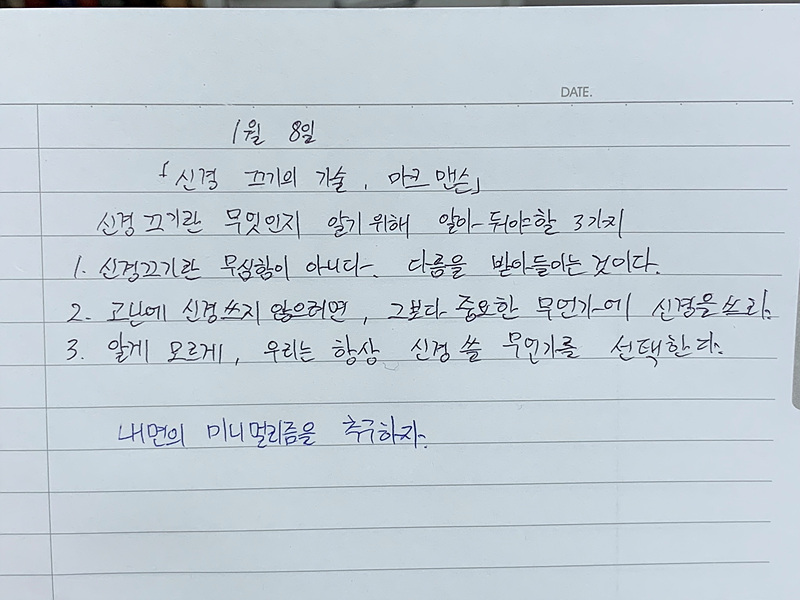 DATE.
1월 8일
「신경 끄기의 기술, 마크 맨슨」
신경 끄기란 무엇인지 알기 위해 알아 둬야할 3가지
1. 신경끄기란 무심함이 아니다. 다름을 받아들이는 것이다.
2. 고난에 신경쓰지 않으려면, 그보다 중요한 무언가에 신경을 쓰라.
3. 알게 모르게, 우리는 항상 신경 쓸 무언가를 선택한다.
내면의 미니멀리즘을 추구하자.